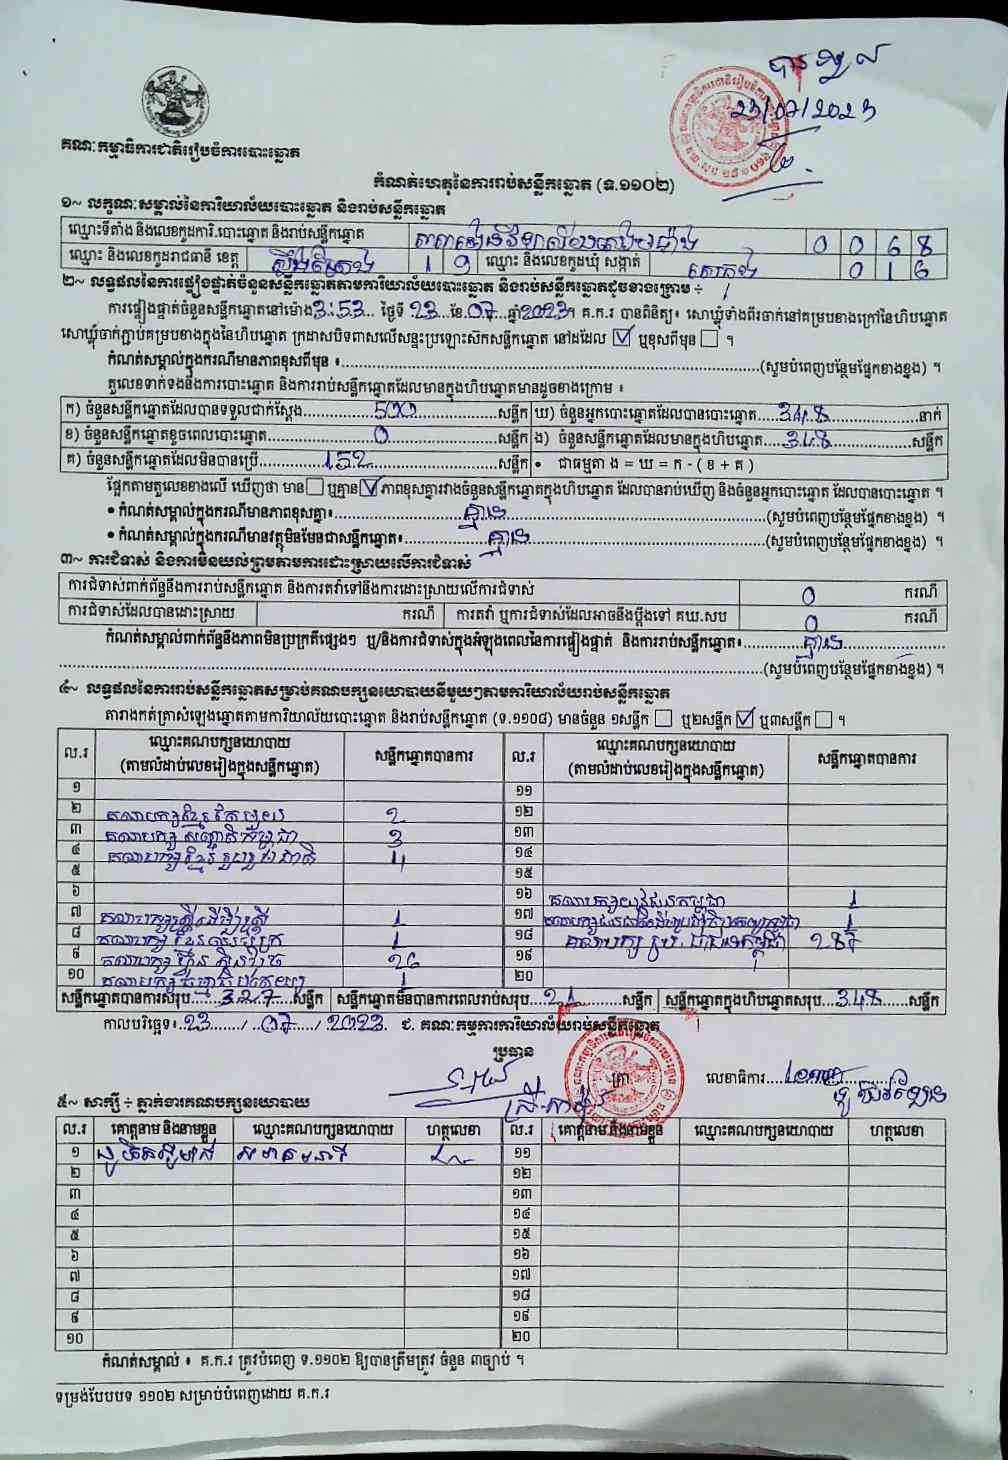 បានទទួល
23/07/2023
គណៈកម្មាធិការជាតិរៀបចំការបោះឆ្នោត
កំណត់ហេតុនៃការរាប់សន្លឹកឆ្នោត (ទ.១១០២)
១~ លក្ខណៈសម្គាល់នៃការិយាល័យបោះឆ្នោត និងរាប់សន្លឹកឆ្នោត
ឈ្មោះទីតាំង និងលេខកូដការិ.បោះឆ្នោត និងរាប់សន្លឹកឆ្នោត 0 0 6 8
ឈ្មោះ និងលេខកូដរាជធានី ខេត្ត ស្ទឹងត្រែង 1 9 ឈ្មោះ និងលេខកូដឃុំ សង្កាត់ 0 1 6
២~ លទ្ធផលនៃការផ្ទៀងផ្ទាត់ចំនួនសន្លឹកឆ្នោតតាមការិយាល័យបោះឆ្នោត និងរាប់សន្លឹកឆ្នោតដូចខាងក្រោម ÷
ការផ្ទៀងផ្ទាត់ចំនួនសន្លឹកឆ្នោតនៅម៉ោង 3:53 ថ្ងៃទី 23 ខែ 07 ឆ្នាំ 2023។ គ.ក.រ បានពិនិត្យ៖ សោឃ្លុំទាំងពីរចាក់នៅគម្របខាងក្រៅនៃហិបឆ្នោត
សោឃ្លុំចាក់ភ្ជាប់គម្របខាងក្នុងនៃហិបឆ្នោត ក្រដាសបិទពាសលើសន្ទះប្រឡោះស៊កសន្លឹកឆ្នោត នៅដដែល ☑ ឬខុសពីមុន ☐ ។
កំណត់សម្គាល់ក្នុងករណីមានភាពខុសពីមុន ៖ (សូមបំពេញបន្ថែមផ្នែកខាងខ្នង) ។
តួលេខទាក់ទងនឹងការបោះឆ្នោត និងការរាប់សន្លឹកឆ្នោតដែលមានក្នុងហិបឆ្នោតមានដូចខាងក្រោម ៖
ក) ចំនួនសន្លឹកឆ្នោតដែលបានទទួលជាក់ស្តែង 500 សន្លឹក ឃ) ចំនួនអ្នកបោះឆ្នោតដែលបានបោះឆ្នោត 348 នាក់
ខ) ចំនួនសន្លឹកឆ្នោតខូចពេលបោះឆ្នោត 0 សន្លឹក ង) ចំនួនសន្លឹកឆ្នោតដែលមានក្នុងហិបឆ្នោត 348 សន្លឹក
គ) ចំនួនសន្លឹកឆ្នោតដែលមិនបានប្រើ 152 សន្លឹក • ជាធម្មតា ង = ឃ = ក - ( ខ + គ )
ផ្អែកតាមតួលេខខាងលើ ឃើញថា មាន ☐ ឬគ្មាន ☑ ភាពខុសគ្នារវាងចំនួនសន្លឹកឆ្នោតក្នុងហិបឆ្នោត ដែលបានរាប់ឃើញ និងចំនួនអ្នកបោះឆ្នោត ដែលបានបោះឆ្នោត ។
• កំណត់សម្គាល់ក្នុងករណីមានភាពខុសគ្នា៖ គ្មាន (សូមបំពេញបន្ថែមផ្នែកខាងខ្នង) ។
• កំណត់សម្គាល់ក្នុងករណីមានវត្ថុមិនមែនជាសន្លឹកឆ្នោត៖ គ្មាន (សូមបំពេញបន្ថែមផ្នែកខាងខ្នង) ។
៣~ ការជំទាស់ និងការមិនយល់ព្រមតាមការដោះស្រាយលើការជំទាស់
ការជំទាស់ពាក់ព័ន្ធនឹងការរាប់សន្លឹកឆ្នោត និងការតវ៉ាទៅនឹងការដោះស្រាយលើការជំទាស់ 0 ករណី
ការជំទាស់ដែលបានដោះស្រាយ ករណី ការតវ៉ា ឬការជំទាស់ដែលអាចនឹងប្តឹងទៅ គឃ.សប 0 ករណី
កំណត់សម្គាល់ពាក់ព័ន្ធនឹងភាពមិនប្រក្រតីផ្សេងៗ ឬ/និងការជំទាស់ក្នុងអំឡុងពេលនៃការផ្ទៀងផ្ទាត់ និងការរាប់សន្លឹកឆ្នោត៖ គ្មាន
(សូមបំពេញបន្ថែមផ្នែកខាងខ្នង) ។
៤~ លទ្ធផលនៃការរាប់សន្លឹកឆ្នោតសម្រាប់គណបក្សនយោបាយនីមួយៗតាមការិយាល័យរាប់សន្លឹកឆ្នោត
តារាងកត់ត្រាសំឡេងឆ្នោតតាមការិយាល័យបោះឆ្នោត និងរាប់សន្លឹកឆ្នោត (ទ.១១០៨) មានចំនួន ១សន្លឹក ☐ ឬ២សន្លឹក ☑ ឬ៣សន្លឹក ☐ ។
ល.រ ឈ្មោះគណបក្សនយោបាយ (តាមលំដាប់លេខរៀងក្នុងសន្លឹកឆ្នោត) សន្លឹកឆ្នោតបានការ ល.រ ឈ្មោះគណបក្សនយោបាយ (តាមលំដាប់លេខរៀងក្នុងសន្លឹកឆ្នោត) សន្លឹកឆ្នោតបានការ
១ ១១
២ គណបក្សខ្មែរតែមួយ 2 ១២
៣ គណបក្ស សញ្ជាតិកម្ពុជា 3 ១៣
៤ គណបក្សខ្មែរ រួបរួមជាតិ 4 ១៤
៥ ១៥
៦ ១៦ គណបក្សយុវជនកម្ពុជា 1
៧ គណបក្សស្ត្រីដើម្បីស្ត្រី 1 ១៧ 1
៨ គណបក្ស 1 ១៨ គណបក្ស ប្រជាជនកម្ពុជា 287
៩ គណបក្ស ហ្វ៊ុនស៊ិនប៉ិច 26 ១៩
១០ គណបក្សធម្មាធិបតេយ្យ 1 ២០
សន្លឹកឆ្នោតបានការសរុប 327 សន្លឹក សន្លឹកឆ្នោតមិនបានការពេលរាប់សរុប 21 សន្លឹក សន្លឹកឆ្នោតក្នុងហិបឆ្នោតសរុប 348 សន្លឹក
កាលបរិច្ឆេទ៖ 23 / 07 / 2023 ជ. គណៈកម្មការការិយាល័យរាប់សន្លឹកឆ្នោត
ប្រធាន ត្រា លេខាធិការ
៥~ សាក្សី ÷ ភ្នាក់ងារគណបក្សនយោបាយ
ល.រ គោត្តនាម និងនាមខ្លួន ឈ្មោះគណបក្សនយោបាយ ហត្ថលេខា ល.រ គោត្តនាម និងនាមខ្លួន ឈ្មោះគណបក្សនយោបាយ ហត្ថលេខា
១ ១១
២ ១២
៣ ១៣
៤ ១៤
៥ ១៥
៦ ១៦
៧ ១៧
៨ ១៨
៩ ១៩
១០ ២០
កំណត់សម្គាល់ ៖ គ.ក.រ ត្រូវបំពេញ ទ.១១០២ ឱ្យបានត្រឹមត្រូវ ចំនួន ៣ច្បាប់ ។
ទម្រង់បែបបទ ១១០២ សម្រាប់បំពេញដោយ គ.ក.រ